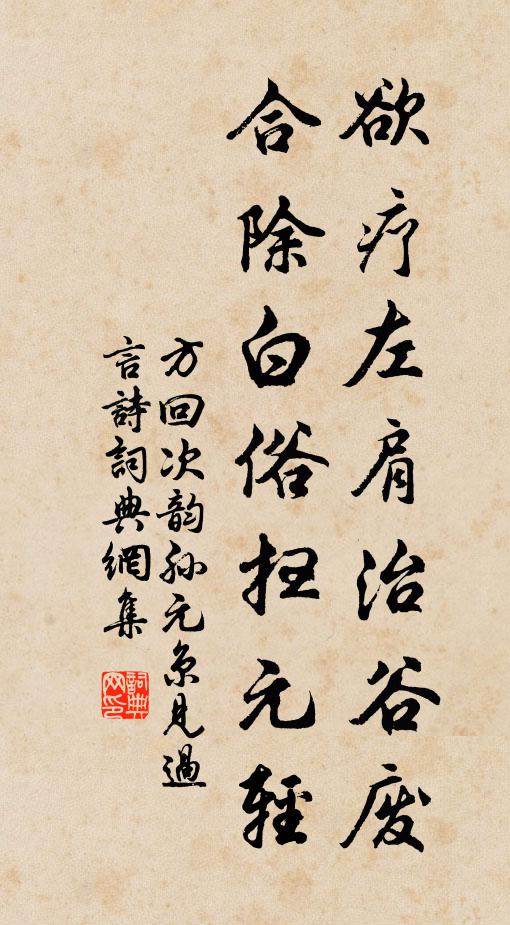 欲疗左肩治谷废
合除白俗扫元輕
方回次韵孙元京見過
言詩詞典網集
詞典网印